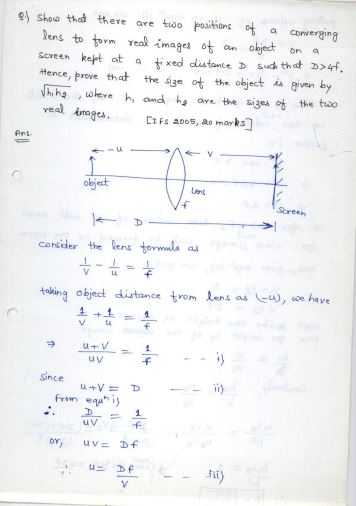 Q.) Show that there are two positions of a converging
lens to form real images of an object on a
screen kept at a fixed distance D such that D>4f.
Hence, prove that the size of the object is given by
√h₁h₂, where h₁ and h₂ are the sizes of the two
real images. [IFS 2005, 20 marks]
Ans.
-u v
object lens f screen
D
consider the lens formula as
1/v - 1/u = 1/f
taking object distance from lens as (-u), we have
1/v + 1/u = 1/f
⇒ u+v/uv = 1/f -- i)
since
u+v = D -- ii)
from equⁿ i)
∴ D/uv = 1/f
or, uv = Df
∴ u = Df/v -- iii)